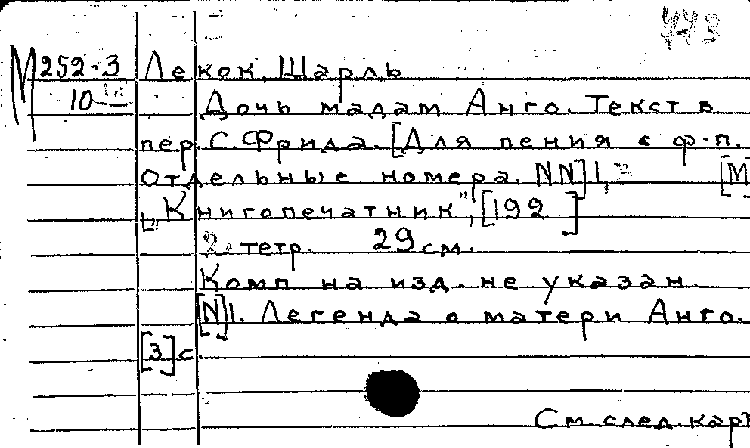 443
М 252-3 Лекок, Шарль
10
Дочь мадам Анго. Текст в
пер. С. Фрида. [Для пения с ф-п.
Отдельные номера. NN] 1, [М
"Книгопечатник", [192 ]
2 тетр. 29 см.
Комп. на изд. не указан.
[N] 1. Легенда о матери Анго.
[3] с.
См. след. карт